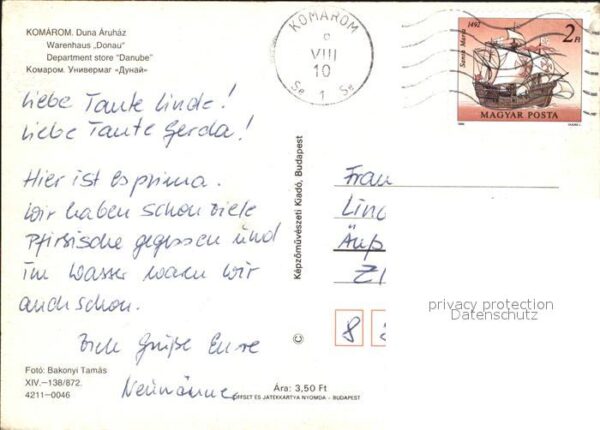 KOMÁROM. Duna Áruház
Warenhaus „Donau"
Department store "Danube"
Комаром. Универмаг «Дунай»
KOMÁROM
VIII
10
Se 1 Se
Santa Maria 1492
2 Ft
MAGYAR POSTA
Liebe Tante Linde!
Liebe Tante Gerda!
Hier ist es prima.
Wir haben schon viele
Pfirsische gegessen und
im Wasser waren wir
auch schon.
Viele Grüße Eure
Képzőművészeti Kiadó, Budapest
Frau
Lin
©
8
privacy protection
Datenschutz
Fotó: Bakonyi Tamás
XIV.–138/872.
4211–0046
Ára: 3,50 Ft
OFFSET ÉS JÁTÉKKÁRTYA NYOMDA – BUDAPEST